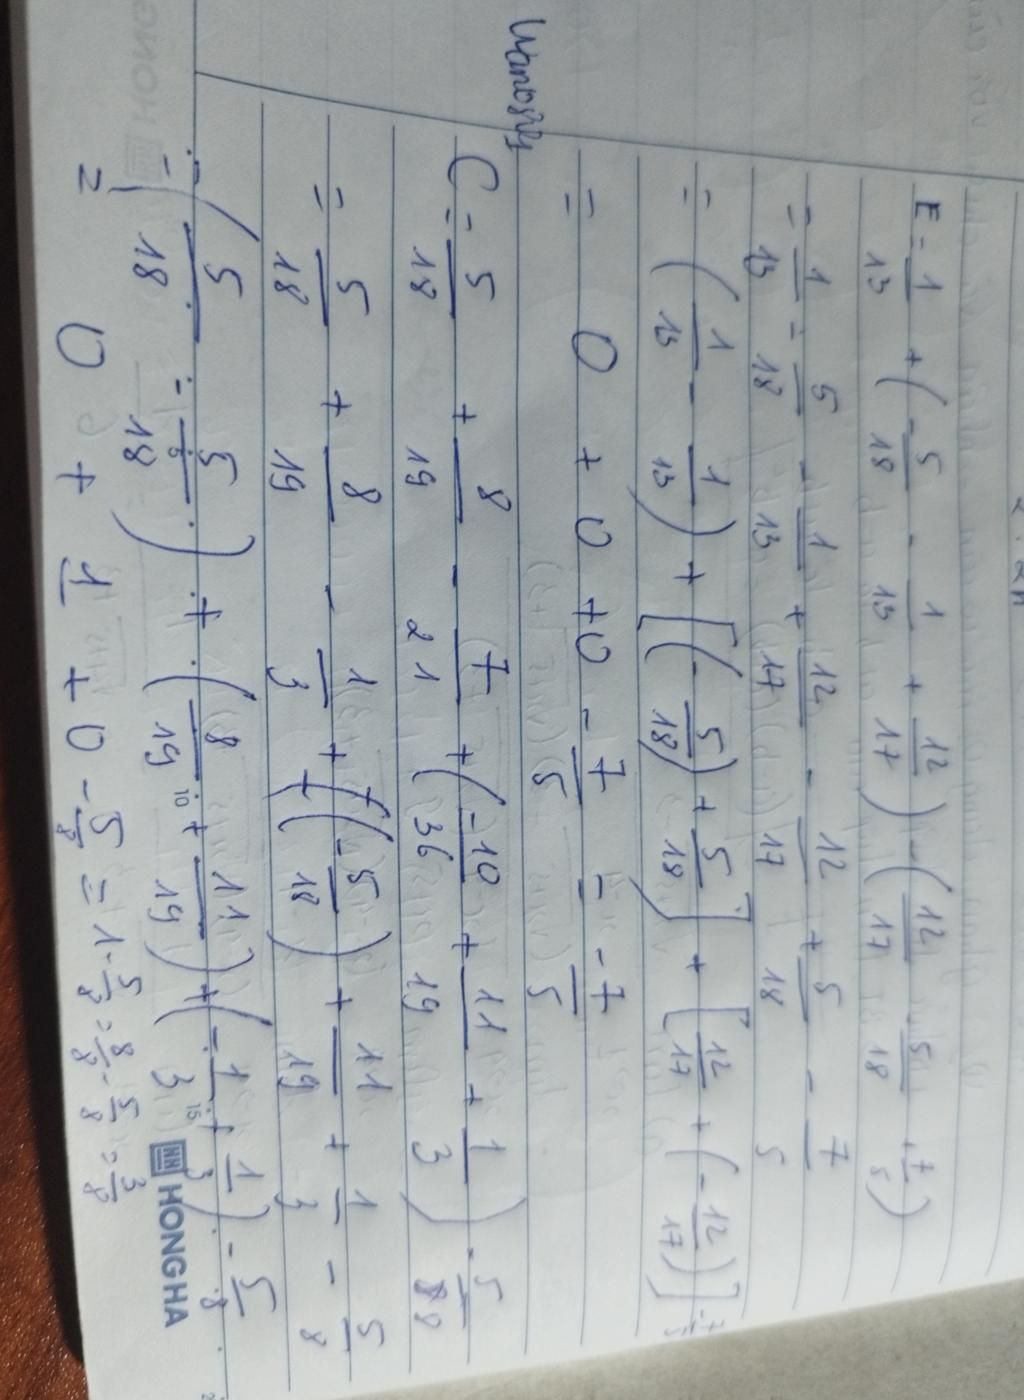 E = 1/13 + (-5/18 - 1/13 + 12/17) - (12/17 - 5/18 + 7/5)
= 1/13 - 5/18 - 1/13 + 12/17 - 12/17 + 5/18 - 7/5
= (1/13 - 1/13) + [(-5/18) + 5/18] + [12/17 + (-12/17)] - 7/5
= 0 + 0 + 0 - 7/5 = -7/5
C = 5/18 + 8/19 - 7/21 + (-10/36 + 11/19 + 1/3) - 5/8
= 5/18 + 8/19 - 1/3 + (-5/18) + 11/19 + 1/3 - 5/8
= (5/18 - 5/18) + (8/19 + 11/19) + (-1/3 + 1/3) - 5/8
= 0 + 1 + 0 - 5/8 = 1 - 5/8 = 8/8 - 5/8 = 3/8
HONG HA